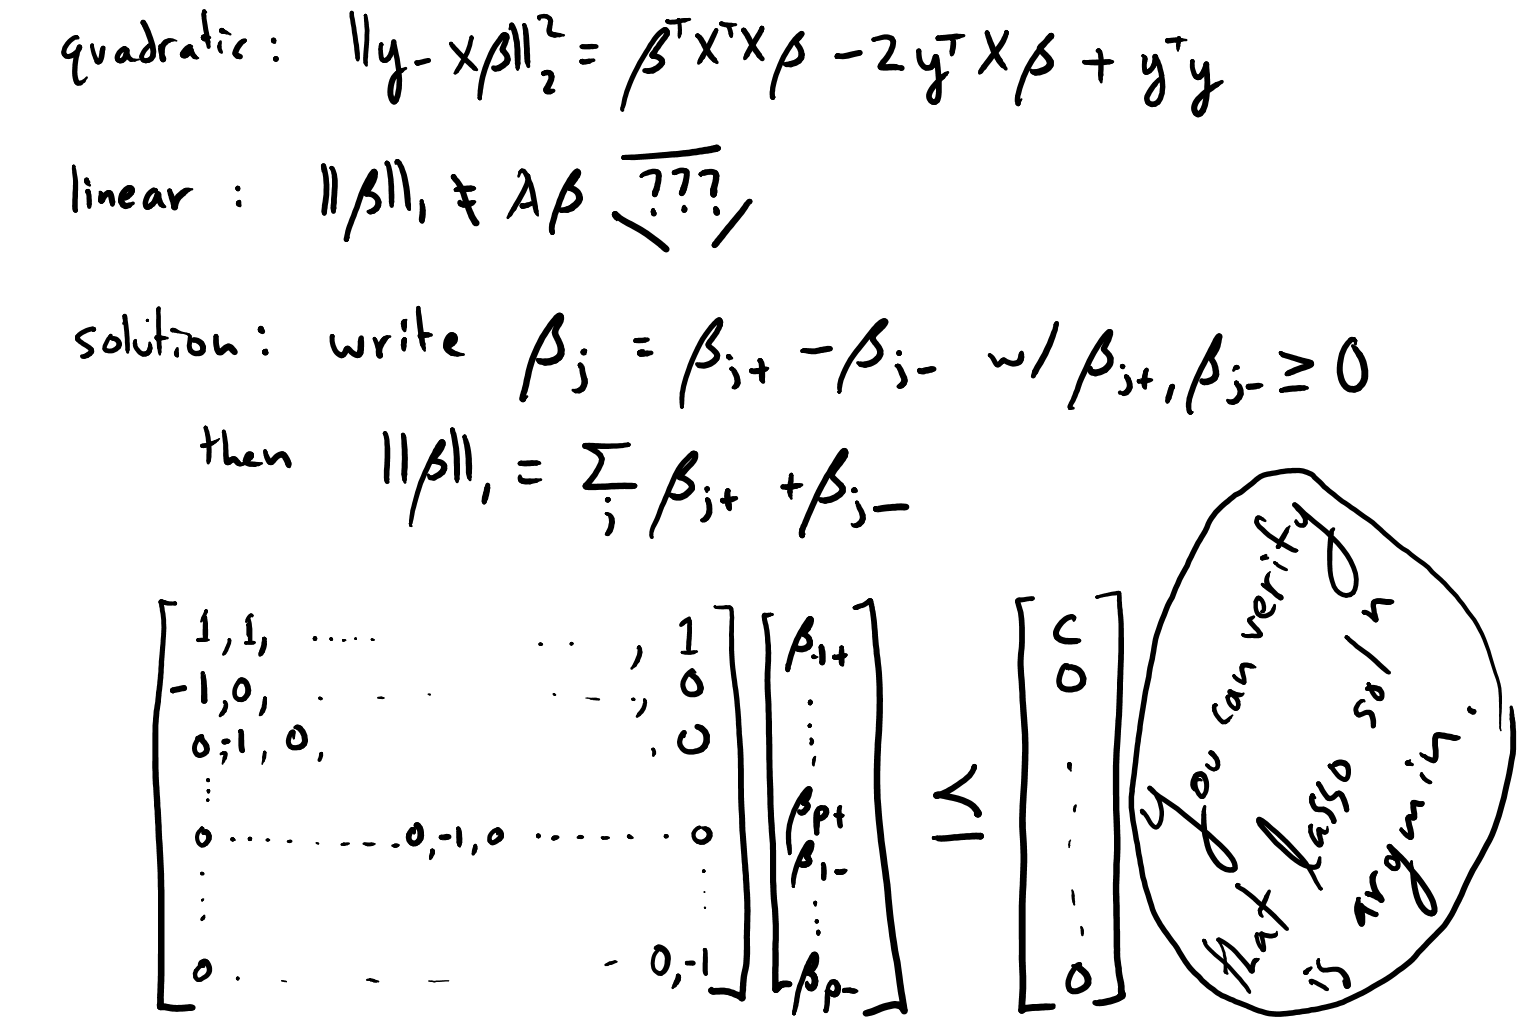 quadratic: ||y - Xβ||₂² = βᵀXᵀXβ - 2yᵀXβ + yᵀy
linear: ||β||₁ ≠ λβ ???
solution: write βⱼ = βⱼ₊ - βⱼ₋ w/ βⱼ₊, βⱼ₋ ≥ 0
then ||β||₁ = Σⱼ βⱼ₊ + βⱼ₋
[ 1, 1, ..... .. , 1 ] [ β₁₊ ] [ C ]
[ -1, 0, . . . . . . , 0 ] [ ⋮ ] [ 0 ]
[ 0, -1, 0, . 0 ] [ ⋮ ] [ . ]
[ ⋮ ] [ βp₊ ] ≤ [ . ]
[ 0 ........ 0, -1, 0 ....... 0 ] [ β₁₋ ] [ . ]
[ ⋮ ⋮ ] [ ⋮ ] [ . ]
[ 0 . . . . - 0, -1 ] [ βp₋ ] [ 0 ]
you can verify
that lasso sol/n
is argmin.